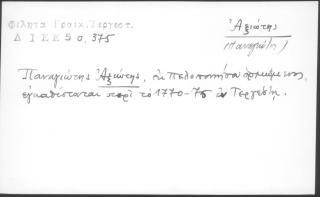 Φίλητα Γραικ. Τεργεστ.
Δ Ι Ε Ε 5 σ. 375
Ἀξιώτης
(Παναγιώτης)
Παναγιώτης Ἀξιώτης, ἐκ Πελοποννήσου ὁρμώμενος,
ἐγκαθίσταται περὶ τὸ 1770-75 ἐν Τεργέστῃ.